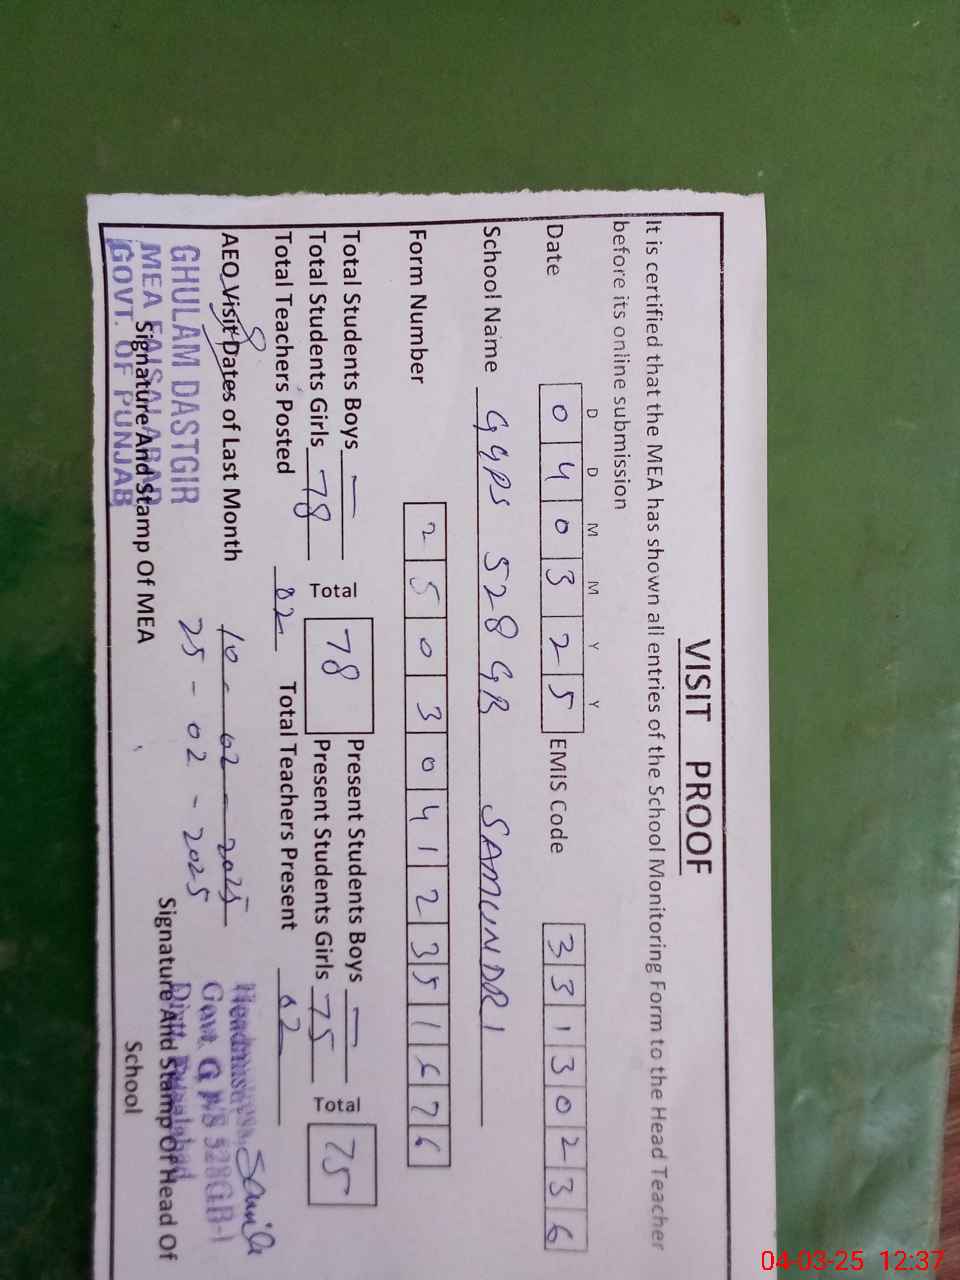 VISIT PROOF
It is certified that the MEA has shown all entries of the School Monitoring Form to the Head Teacher
before its online submission
D D M M Y Y
Date 0 4 0 3 2 5 EMIS Code 3 3 1 3 0 2 3 6
School Name GGPS 528 GB SAMUNDRI
Form Number 2 5 0 3 0 4 1 2 3 5 1 6 7 6
Total Students Boys — Present Students Boys —
Total Students Girls 78 Total 78 Present Students Girls 75 Total 75
Total Teachers Posted 02 Total Teachers Present 02
AEO Visit Dates of Last Month 10 - 02 - 2025
25 - 02 - 2025
GHULAM DASTGIR
MEA FAISALABAD
GOVT. OF PUNJAB
Signature And Stamp Of MEA
Headmistress
Govt. G P/S 528GB-1
Signature And Stamp Of Head Of
School
04-03-25 12:37